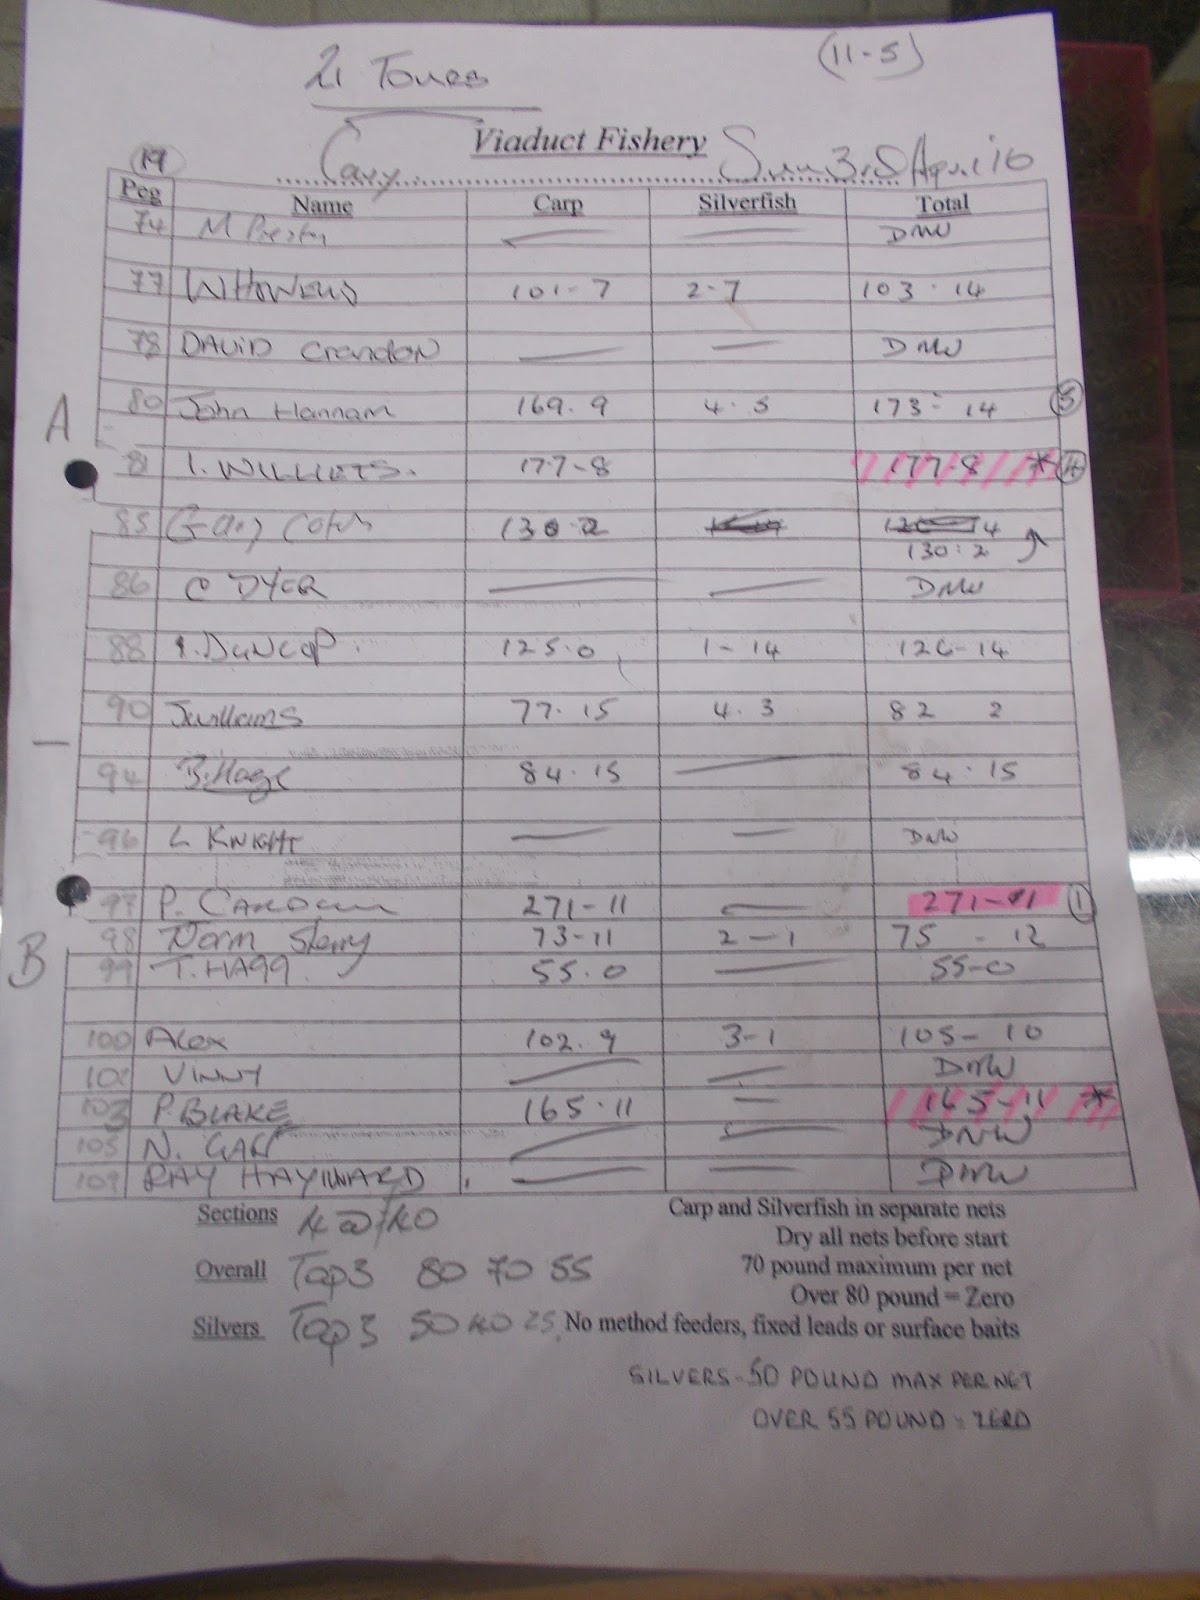 21 Tones (11-5)
Viaduct Fishery
19 Cary Sun 3rd April '16
Peg Name Carp Silverfish Total
74 M Preston — — DNW
77 W Howells 101-7 2-7 103-14
78 DAVID Crandon — — DNW
80 John Hannam 169.9 4.5 173-14 3
A
81 I. WILLIETS. 177-8 177-8 *
85 130.2
130:2
86 C DYER — — DNW
88 125.0 1-14 126-14
90 J Williams 77.15 4.3 82 2
94 B. Hage 84.15 — 84.15
96 L KNIGHT — — DNW
97 P. 271-11 — 271-11 1
98 Norm Sterry 73-11 2-1 75-12
B
99 T. HAGG. 55.0 — 55-0
100 Alex 102.9 3-1 105-10
VINNY — — DNW
103 P. BLAKE 165.11 — 165-11 *
105 N. — — DNW
109 RAY HAYWARD — — DNW
Sections Carp and Silverfish in separate nets
Dry all nets before start
Overall Top 3 80 70 55 70 pound maximum per net
Over 80 pound = Zero
Silvers Top 3 50 40 25 No method feeders, fixed leads or surface baits
SILVERS - 50 POUND MAX PER NET
OVER 55 POUND = ZERO